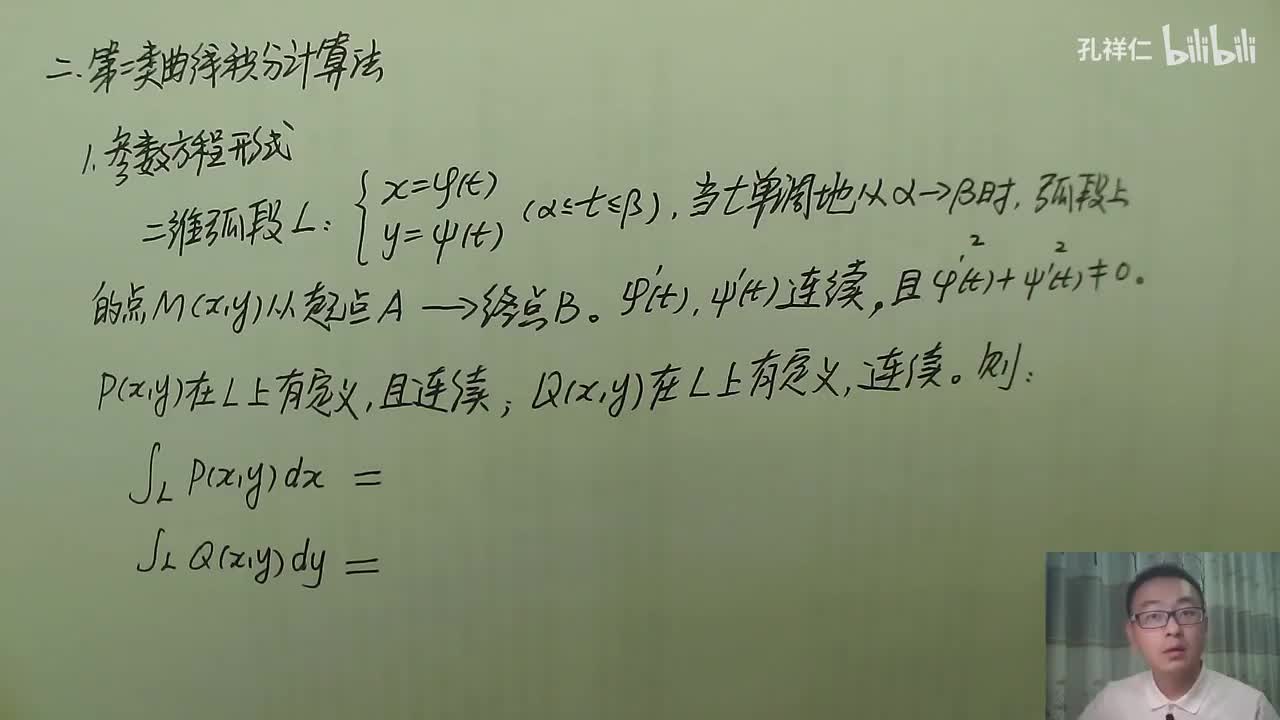 孔祥仁 bilibili
二、第二类曲线积分计算法
1、参数方程形式
二维弧段L: { x=φ(t) y=ψ(t) (α≤t≤β), 当t单调地从α→β时, 弧段上
的点M(x,y)从起点A→终点B。φ'(t), ψ'(t)连续, 且φ'²(t)+ψ'²(t)≠0。
P(x,y)在L上有定义,且连续; Q(x,y)在L上有定义,连续。则:
∫L P(x,y)dx =
∫L Q(x,y)dy =